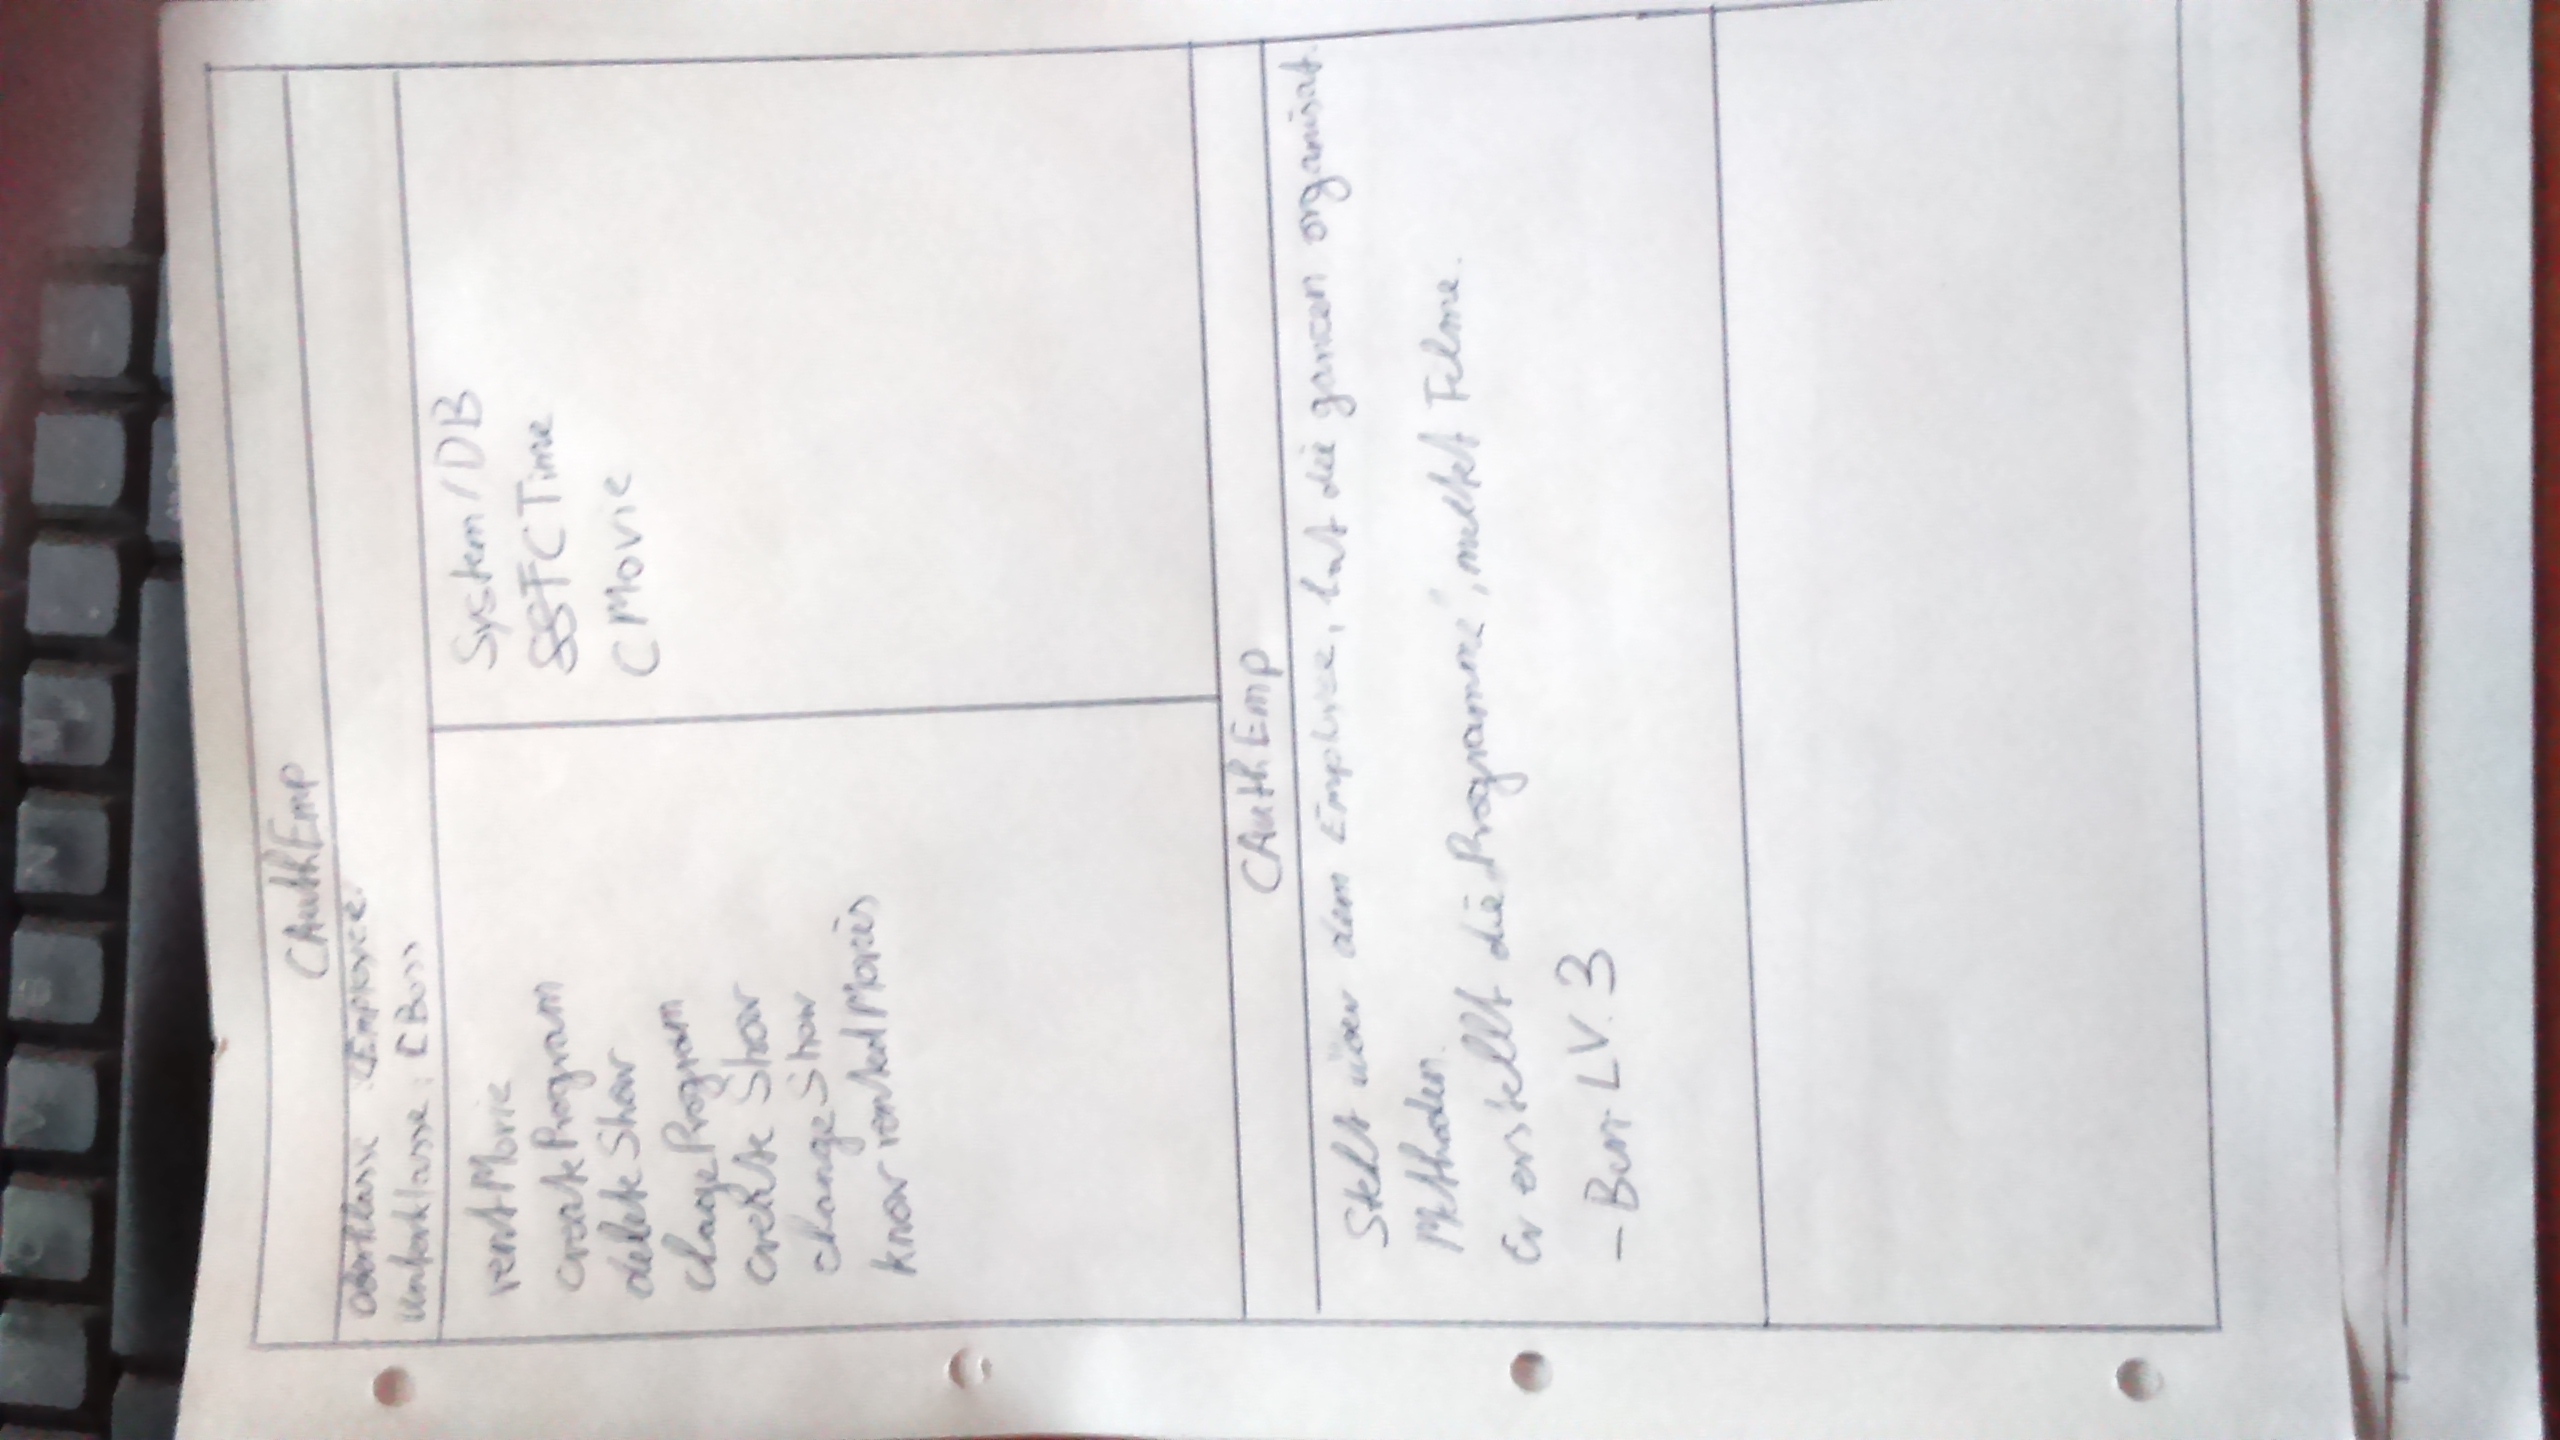 CAuthEmp
Oberklasse : CEmployee
Unterklasse : CBoss
rentMovie
createProgram
deleteShow
chageProgram
create Show
changeShow
know rentedMovies
System/DB
CTime
CMovie
CAuthEmp
Steht über dem Employee, hat die ganzen organisat.
Methoden.
Er erstellt die „Programme“, mietet Filme.
- LV. 3